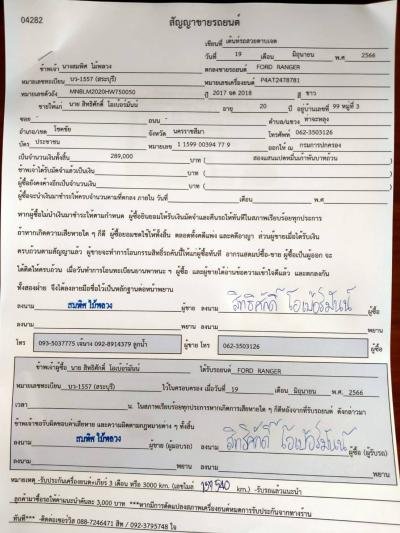 04282
สัญญาขายรถยนต์
เขียนที่ เต้นท์รถสวยตาบเจต
วันที่ 19 เดือน มิถุนายน พ.ศ. 2566
ข้าพเจ้า นางสมพิศ ไม้หลวง ตกลงขายรถยนต์ FORD RANGER
หมายเลขทะเบียน บว-1557 (สระบุรี) หมายเลขเครื่องยนต์ P4AT2478781
หมายเลขตัวถัง MNBLM2020HW750050 ปี 2017 จด 2018 สี ขาว
ขายให้แก่ นาย สิทธิศักดิ์ โอเบ้อร์มันน์ อายุ 20 ปี อยู่บ้านเลขที่ 99 หมู่ที่ 3
ซอย - ถนน - ตำบล/แขวง ท่าจะหลุง
อำเภอ/เขต โชคชัย จังหวัด นครราชสีมา โทรศัพท์ 062-3503126
บัตร ประชาชน หมายเลข 1 1599 00394 77 9 ออกให้ ณ กรมการปกครอง
เป็นจำนวนเงินทั้งสิ้น 289,000 บาท ( สองแสนแปดหมื่นเก้าพันบาทถ้วน )
ข้าพเจ้าได้รับมัดจำแล้วเป็นเงิน บาท (
ผู้ซื้อยังคงค้างอีกเป็นจำนวนเงิน บาท (
ผู้ซื้อจะนำเงินมาชำระให้ครบจำนวนตามที่ตกลง ภายใน วันที่ เดือน พ.ศ.
หากผู้ซื้อไม่นำเงินมาชำระให้ตามกำหนด ผู้ซื้อยินยอมให้ริบเงินมัดจำและคืนรถให้ทันทีในสภาพเรียบร้อยทุกประการ
ถ้าหากเกิดความเสียหายใด ๆ ก็ดี ผู้ซื้อยอมชดใช้ให้ทั้งสิ้น ตลอดทั้งคดีแพ่ง และคดีอาญา ส่วนผู้ขายเมื่อได้รับเงิน
ครบถ้วนตามสัญญาแล้ว ผู้ขายจะทำการโอนกรรมสิทธิ์รถคันนี้ให้แก่ผู้ซื้อทันที อากรแสตมป์ซื้อ-ขาย ผู้ซื้อเป็นผู้ออก จะ
ได้ติดให้ครบถ้วน เมื่อวันทำการโอนทะเบียนยานพาหนะ ฯ ผู้ซื้อ และผู้ขายได้อ่านข้อความเข้าใจดีแล้ว และตกลงกัน
ทั้งสองฝ่าย จึงได้ลงลายมือชื่อไว้เป็นหลักฐานต่อหน้าพยาน
ลงนาม สมพิศ ไม้หลวง ผู้ขาย ลงนาม สิทธิศักดิ์ โอเบ้อร์มันน์ ผู้ซื้อ
ลงนาม พยาน ลงนาม พยาน
โทร 093-5037775 เจ๊นาง 092-8914379 ลูกน้ำ ผู้ขาย โทร 062-3503126 ผู้ซื้อ
ข้าพเจ้าผู้ซื้อ นาย สิทธิศักดิ์ โอเบ้อร์มันน์ ได้รับรถยนต์ FORD RANGER
หมายเลขทะเบียน บว-1557 (สระบุรี) ไว้ในครอบครอง เมื่อวันที่ 19 เดือน มิถุนายน พ.ศ. 2566
เวลา น. ในสภาพเรียบร้อยทุกประการหากเกิดการเสียหายใด ๆ ก็ดีหลังจากที่รับรถยนต์ ดังกล่าวมา
ข้าพเจ้าขอรับผิดชอบค่าเสียหาย และความผิดตามกฎหมายต่าง ๆ ทั้งสิ้น
ลงนาม สมพิศ ไม้หลวง ผู้ขาย (ผู้มอบรถ) ลงนาม สิทธิศักดิ์ โอเบ้อร์มันน์ ผู้ซื้อ (ผู้รับรถ)
ลงนาม พยาน ลงนาม พยาน
หมายเหตุ -รับประกันเครื่องยนต์+เกียร์ 3 เดือน หรือ 3000 km. (เลขไมล์ km.) -รับรถแล้วแนะนำ
ลูกค้ามาซื้อรถให้ค่าแนะนำคันละ 3,000 บาท ***หากมีการดัดแปลงสภาพเครื่องยนต์หมดการรับประกันจากทางร้าน
ทันที*** -ติดต่อเซอร์วิส 088-7246471 สิท / 092-3795748 ใจ